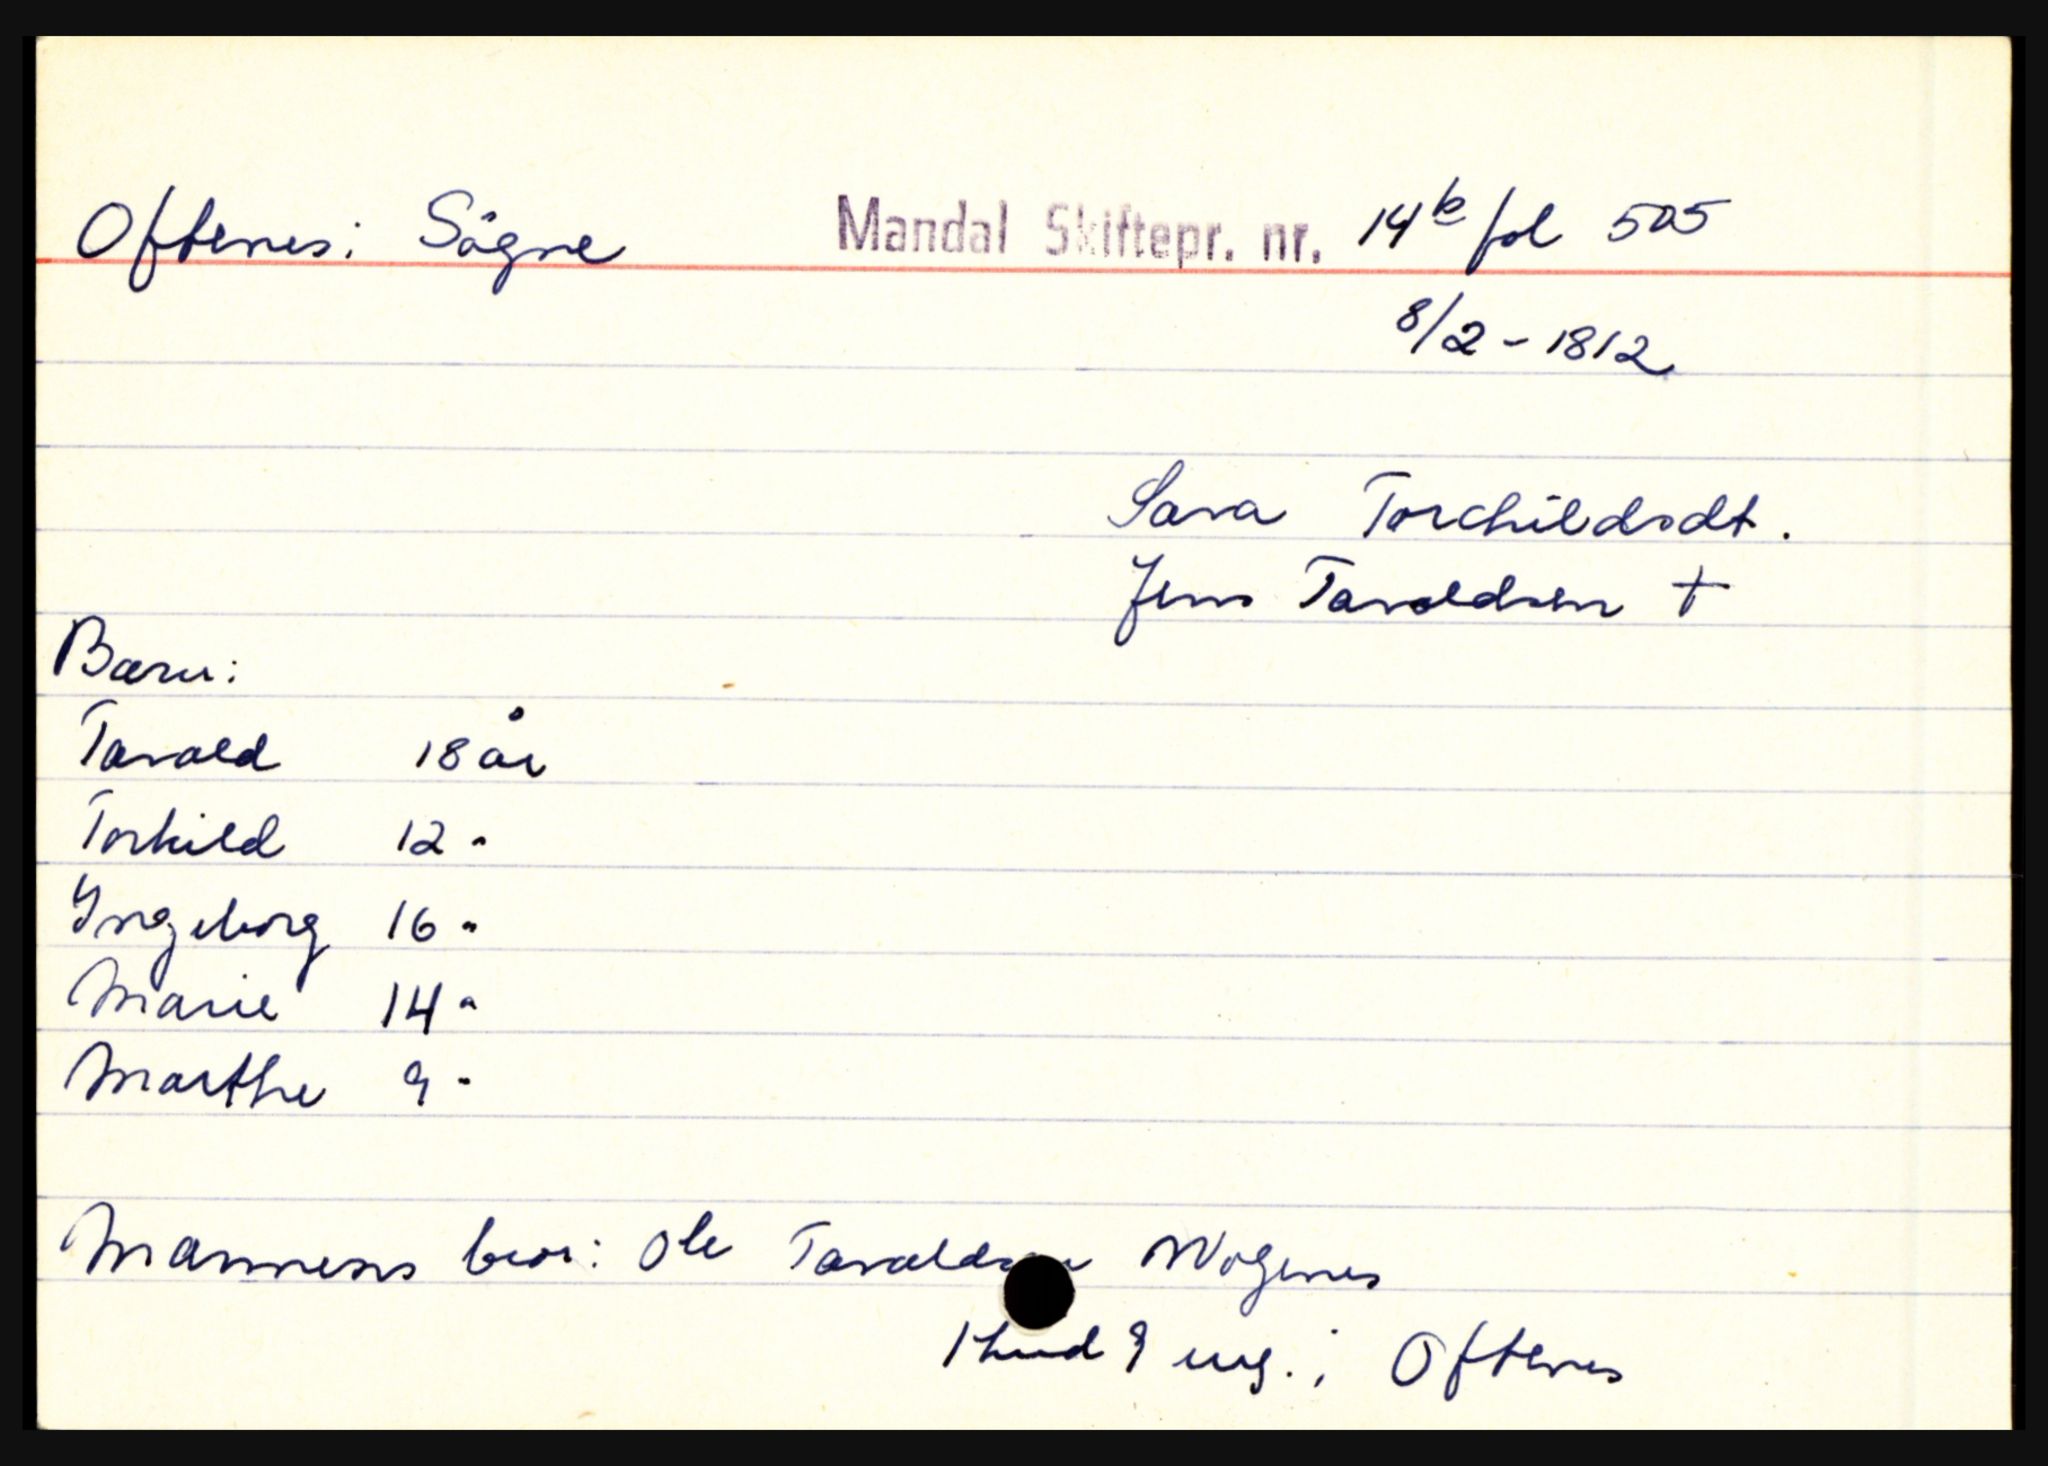 Oftenes i Sögne Mandal Skiftepr. nr. 14b fol 505
8/2 - 1812
Sara Torchildsdt.
Jens Taraldsen †
Barn:
Tarald 18 år
Torkild 12 "
Yngeborg 16 "
Marie 14 "
Marthe 9 "
Mannens bror: Ole Taraldsen Wogenes
1 hud 9 eng. i Oftenes